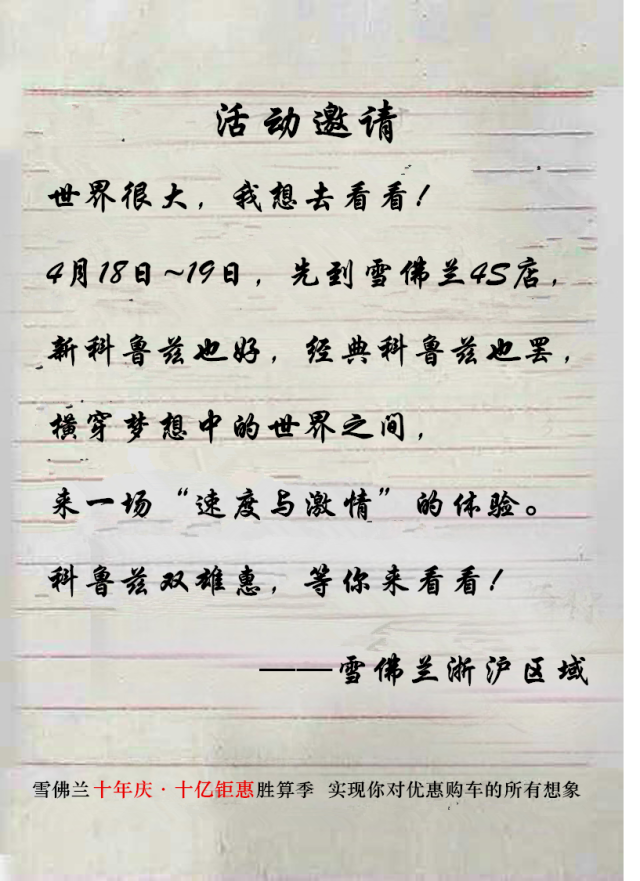 活动邀请
世界很大，我想去看看！
4月18日~19日，先到雪佛兰4S店，
新科鲁兹也好，经典科鲁兹也罢，
横穿梦想中的世界之间，
来一场“速度与激情”的体验。
科鲁兹双雄惠，等你来看看！
——雪佛兰浙沪区域
雪佛兰十年庆·十亿钜惠胜算季 实现你对优惠购车的所有想象